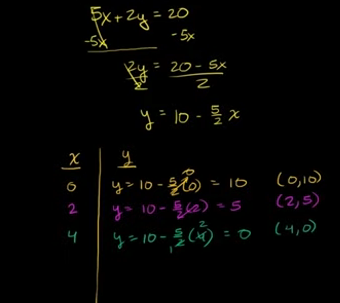 5x + 2y = 20
-5x -5x
2y/2 = (20 - 5x)/2
y = 10 - 5/2 x
x y
0 y = 10 - 5/2(0) = 10 (0,10)
2 y = 10 - 5/2(2) = 5 (2,5)
4 y = 10 - 5/2(4) = 0 (4,0)